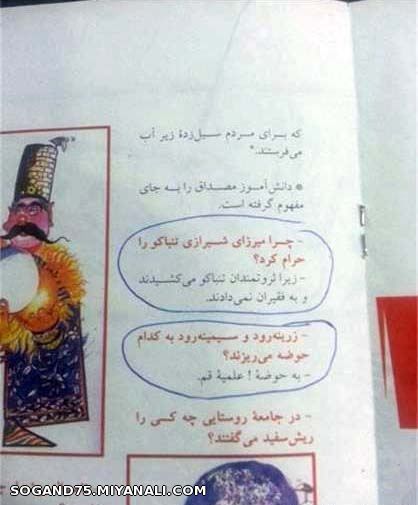 که برای مردم سیل‌زدهٔ زیر آب
می‌فرستند.»
* دانش‌آموز مصداق را به جای
مفهوم گرفته است.
- چرا میرزای شیرازی تنباکو را
حرام کرد؟
- زیرا ثروتمندان تنباکو می‌کشیدند
و به فقیران نمی‌دادند.
- زرینه‌رود و سیمینه‌رود به کدام
حوضه می‌ریزند؟
- به حوضهٔ ! علمیهٔ قم.
- در جامعهٔ روستایی چه کسی را
ریش‌سفید می‌گفتند؟
SOGAND75.MIYANALI.COM